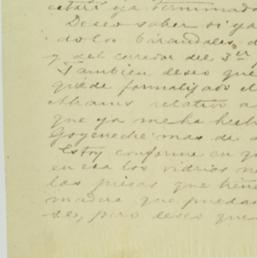 estar ya terminado
Deseo saber si ya
dolos barandales, d
y del corredor del 3er
Tambien deseo que
quede formalizado el
Abrams relativo a
que ya me ha hech
Goyeneche mas de
Estoy conforme en qu
en esa los vidrios ne
las piezas que tiene
madera que puedan
se, pero deseo que